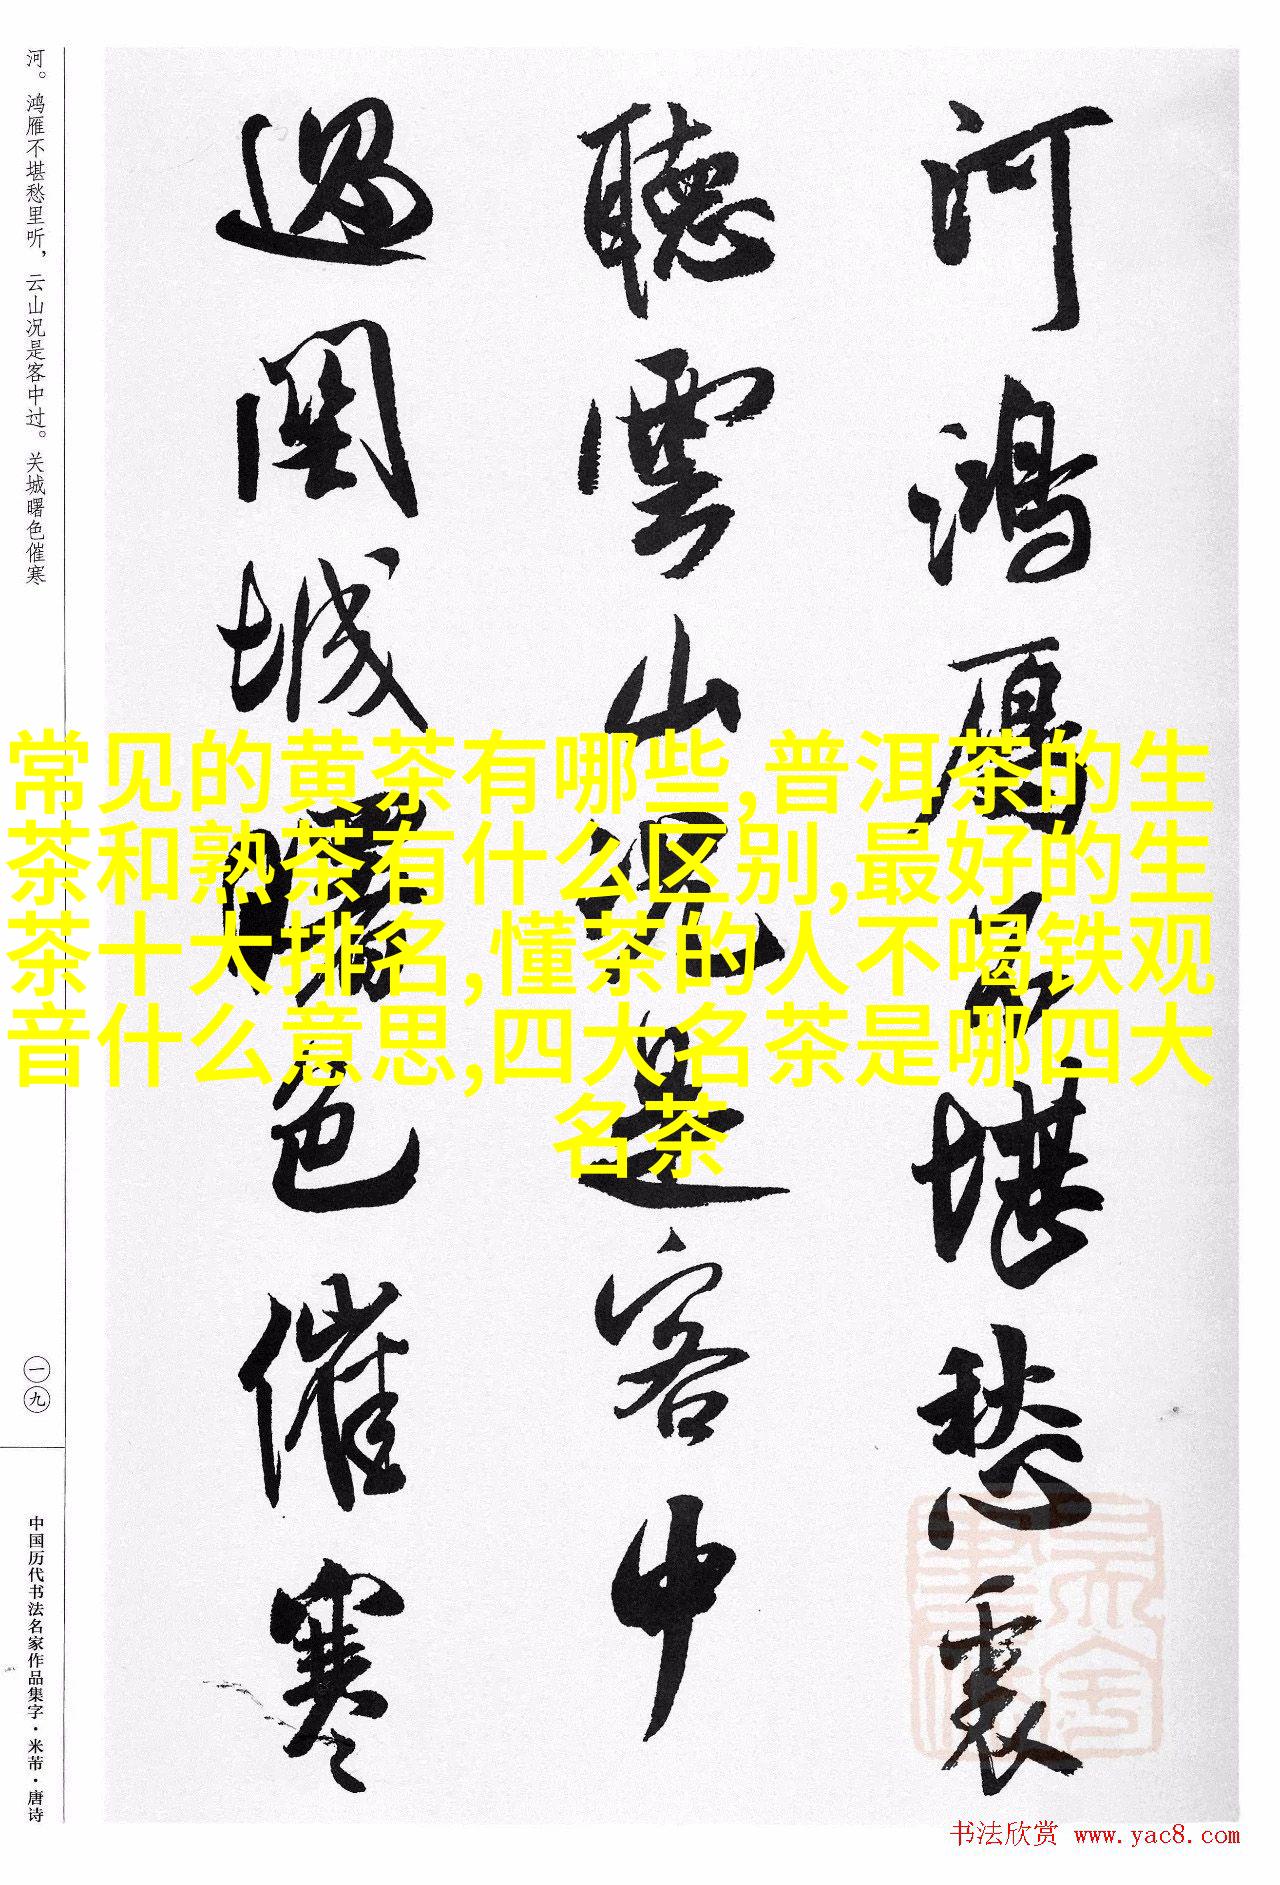 河。鸿雁不堪愁里听，云山况是客中过。关城曙色催寒
河鸿雁不堪愁裏
聽雲山況是客中
過関城曙色催寒
常见的黄茶有哪些,普洱茶的生
茶和熟茶有什么区别,最好的生
茶十大排名,懂茶的人不喝铁观
音什么意思,四大名茶是哪四大
名茶
一九
中国历代书法名家作品集字·米芾·唐诗
书法欣赏 www.yac8.com